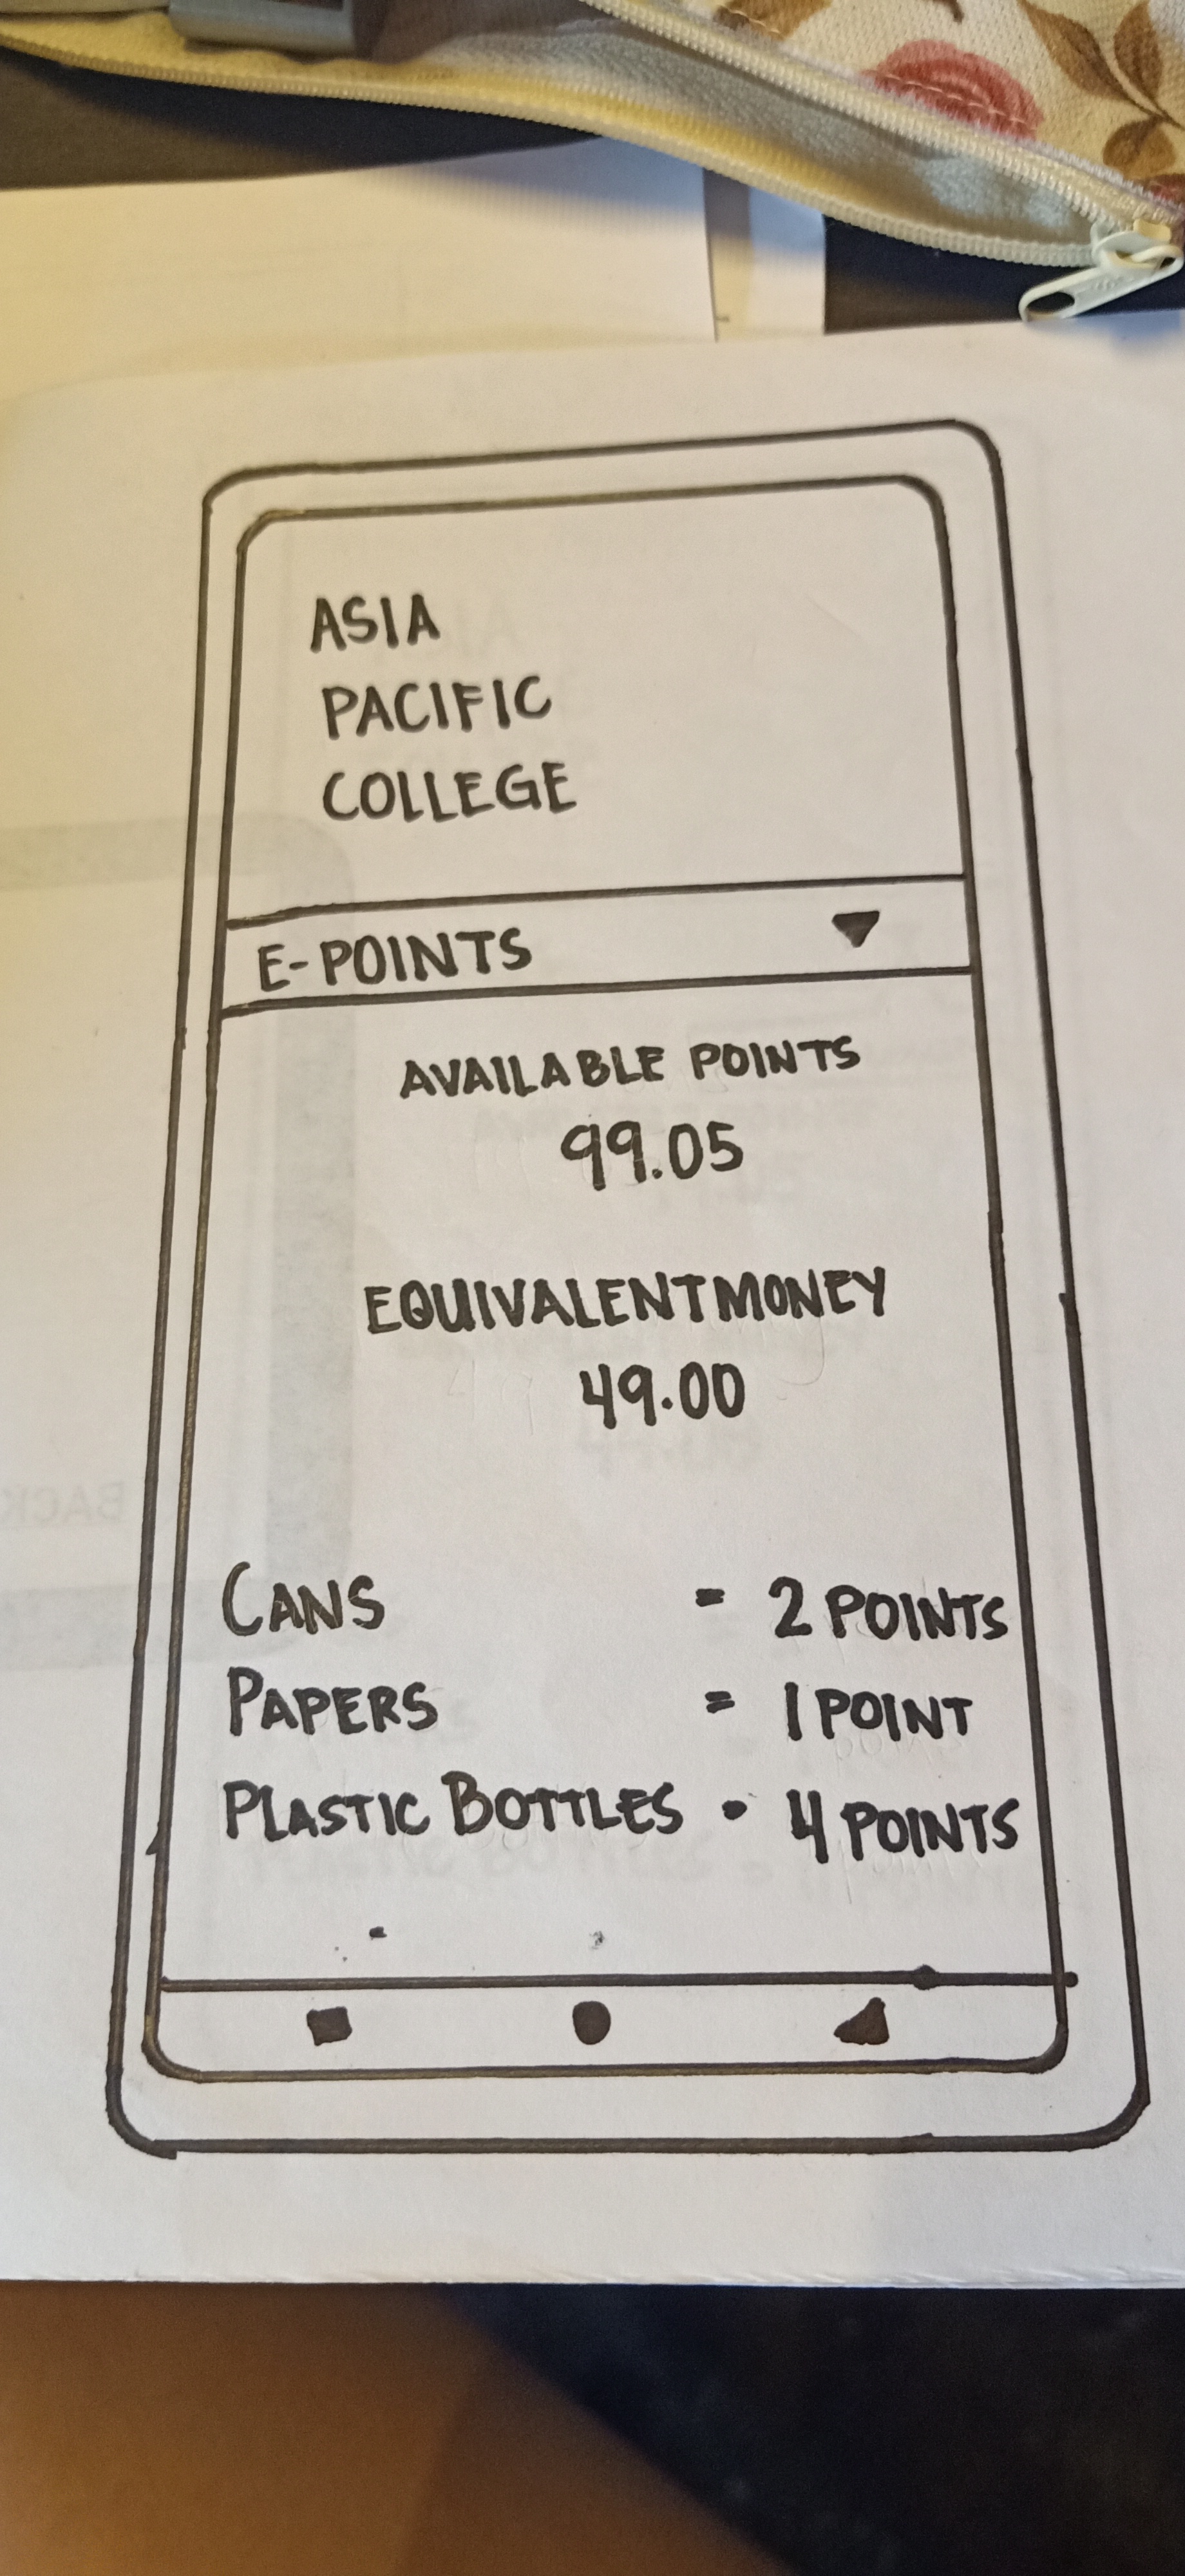 ASIA
PACIFIC
COLLEGE
E-POINTS
AVAILABLE POINTS
99.05
EQUIVALENT MONEY
49.00
CANS = 2 POINTS
PAPERS = 1 POINT
PLASTIC BOTTLES = 4 POINTS
BACK